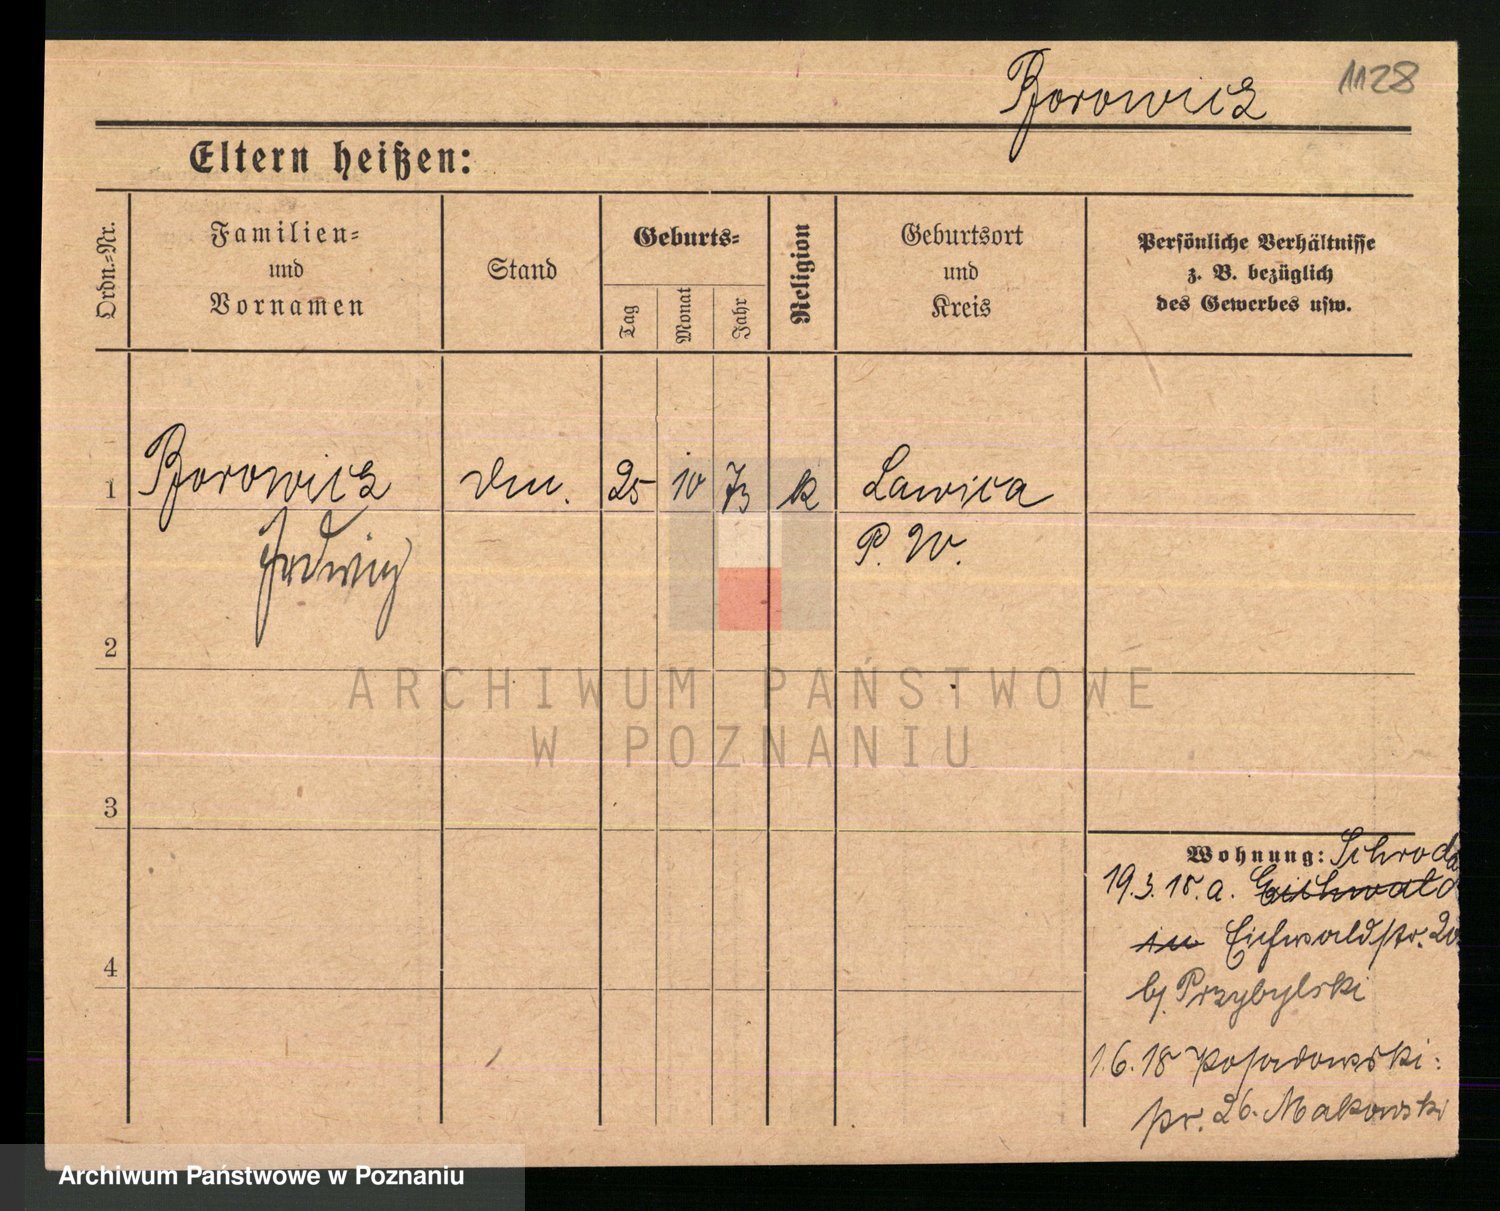 Borowicz 1128
Eltern heißen:
Ordn.=Nr.
Familien=
und
Vornamen
Stand
Geburts=
Tag
Monat
Jahr
Religion
Geburtsort
und
Kreis
Persönliche Verhältnisse
z. B. bezüglich
des Gewerbes usw.
1 Borowicz 25 10 73 k Lawica
Hedwig P. W.
2
3
4
Wohnung: Schroda
19.3.18. a. Eichwald
in Eichwaldstr. 20
bj. Przybylski
1.6.18 Posadowski:
str. 26. Makowski
ARCHIWUM PAŃSTWOWE
W POZNANIU
Archiwum Państwowe w Poznaniu